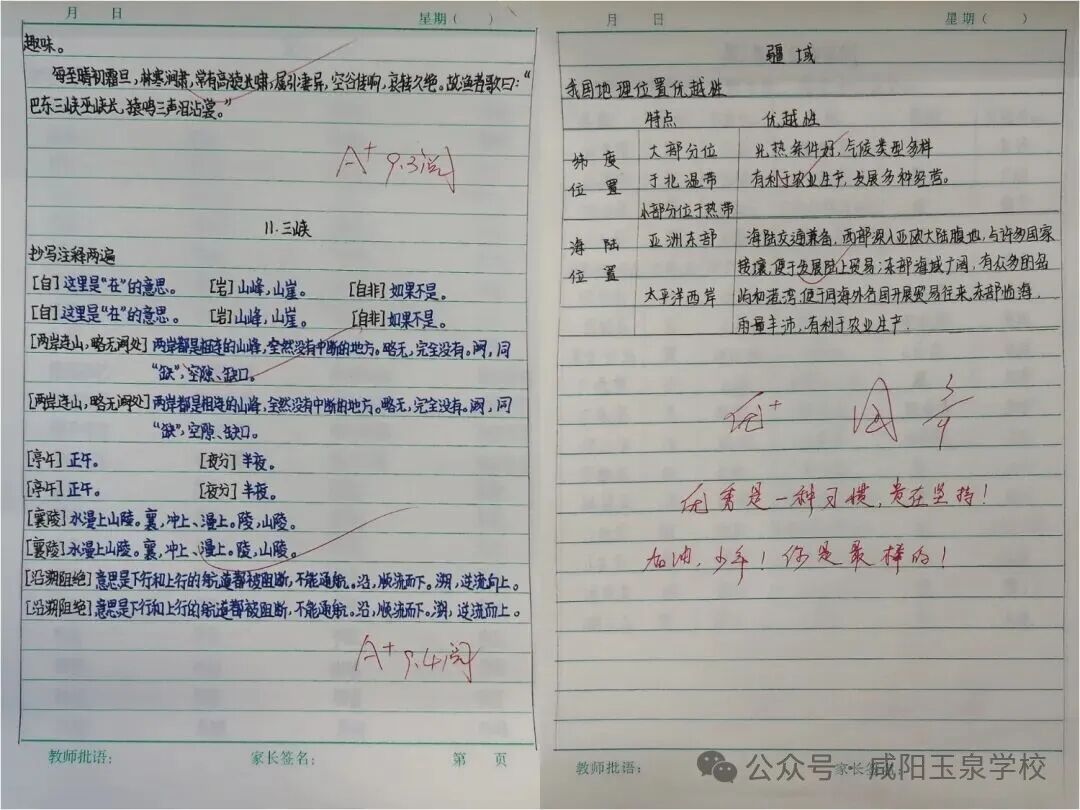 月 日 星期( )
趣味。
每至晴初霜旦,林寒涧肃,常有高猿长啸,属引凄异,空谷传响,哀转久绝。故渔者歌曰:“
巴东三峡巫峡长,猿鸣三声泪沾裳。”
A+ 9.3阅
11.三峡
抄写注释两遍
[自]这里是“在”的意思。 [岩]山峰,山崖。 [自非]如果不是。
[自]这里是“在”的意思。 [岩]山峰,山崖。 [自非]如果不是。
[两岸连山,略无阙处]两岸都是相连的山峰,全然没有中断的地方。略无,完全没有。阙,同
“缺”,空隙、缺口。
[两岸连山,略无阙处]两岸都是相连的山峰,全然没有中断的地方。略无,完全没有。阙,同
“缺”,空隙、缺口。
[亭午]正午。 [夜分]半夜。
[亭午]正午。 [夜分]半夜。
[襄陵]水漫上山陵。襄,冲上、漫上。陵,山陵。
[襄陵]水漫上山陵。襄,冲上、漫上。陵,山陵。
[沿溯阻绝]意思是下行和上行的航道都被阻断,不能通航。沿,顺流而下。溯,逆流向上。
[沿溯阻绝]意思是下行和上行的航道都被阻断,不能通航。沿,顺流而下。溯,逆流而上。
A+ 9.4阅
教师批语: 家长签名: 第 页
月 日 星期( )
疆域
我国地理位置优越性
特点 优越性
纬度 大部分位 光热条件好,气候类型多样
位置 于北温带 有利于农业生产,发展多种经营。
小部分位于热带
海陆 亚洲东部 海陆交通兼备,西部深入亚欧大陆腹地,与许多国家
位置 接壤,便于发展陆上贸易;东部海域广阔,有众多的岛
太平洋西岸 屿和港湾,便于同海外各国开展贸易往来,东部临海,
雨量丰沛,有利于农业生产.
优+ 阅 3/9
优秀是一种习惯,贵在坚持!
加油,少年!你是最棒的!
教师批语: 家长签名:
公众号·咸阳玉泉学校